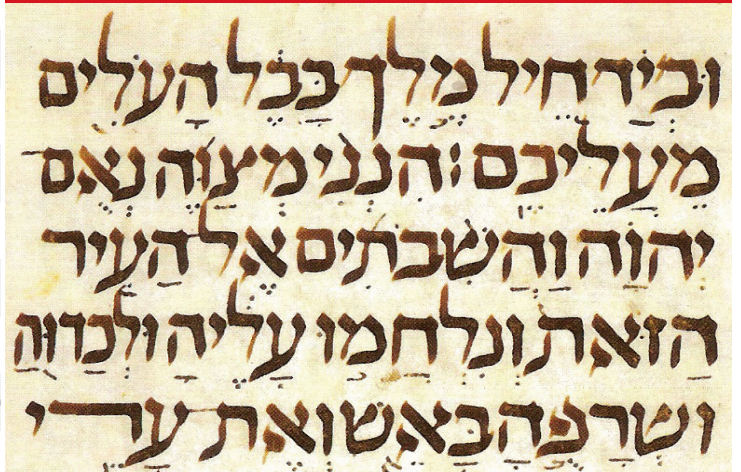 וּבְיַד חֵיל מֶלֶךְ בָּבֶל הָעֹלִים
מֵעֲלֵיכֶם׃ הִנְנִי מְצַוֶּה נְאֻם
יְהוָה וַהֲשִׁבֹתִים אֶל הָעִיר
הַזֹּאת וְנִלְחֲמוּ עָלֶיהָ וּלְכָדוּהָ
וּשְׂרָפֻהָ בָאֵשׁ וְאֶת עָרֵי